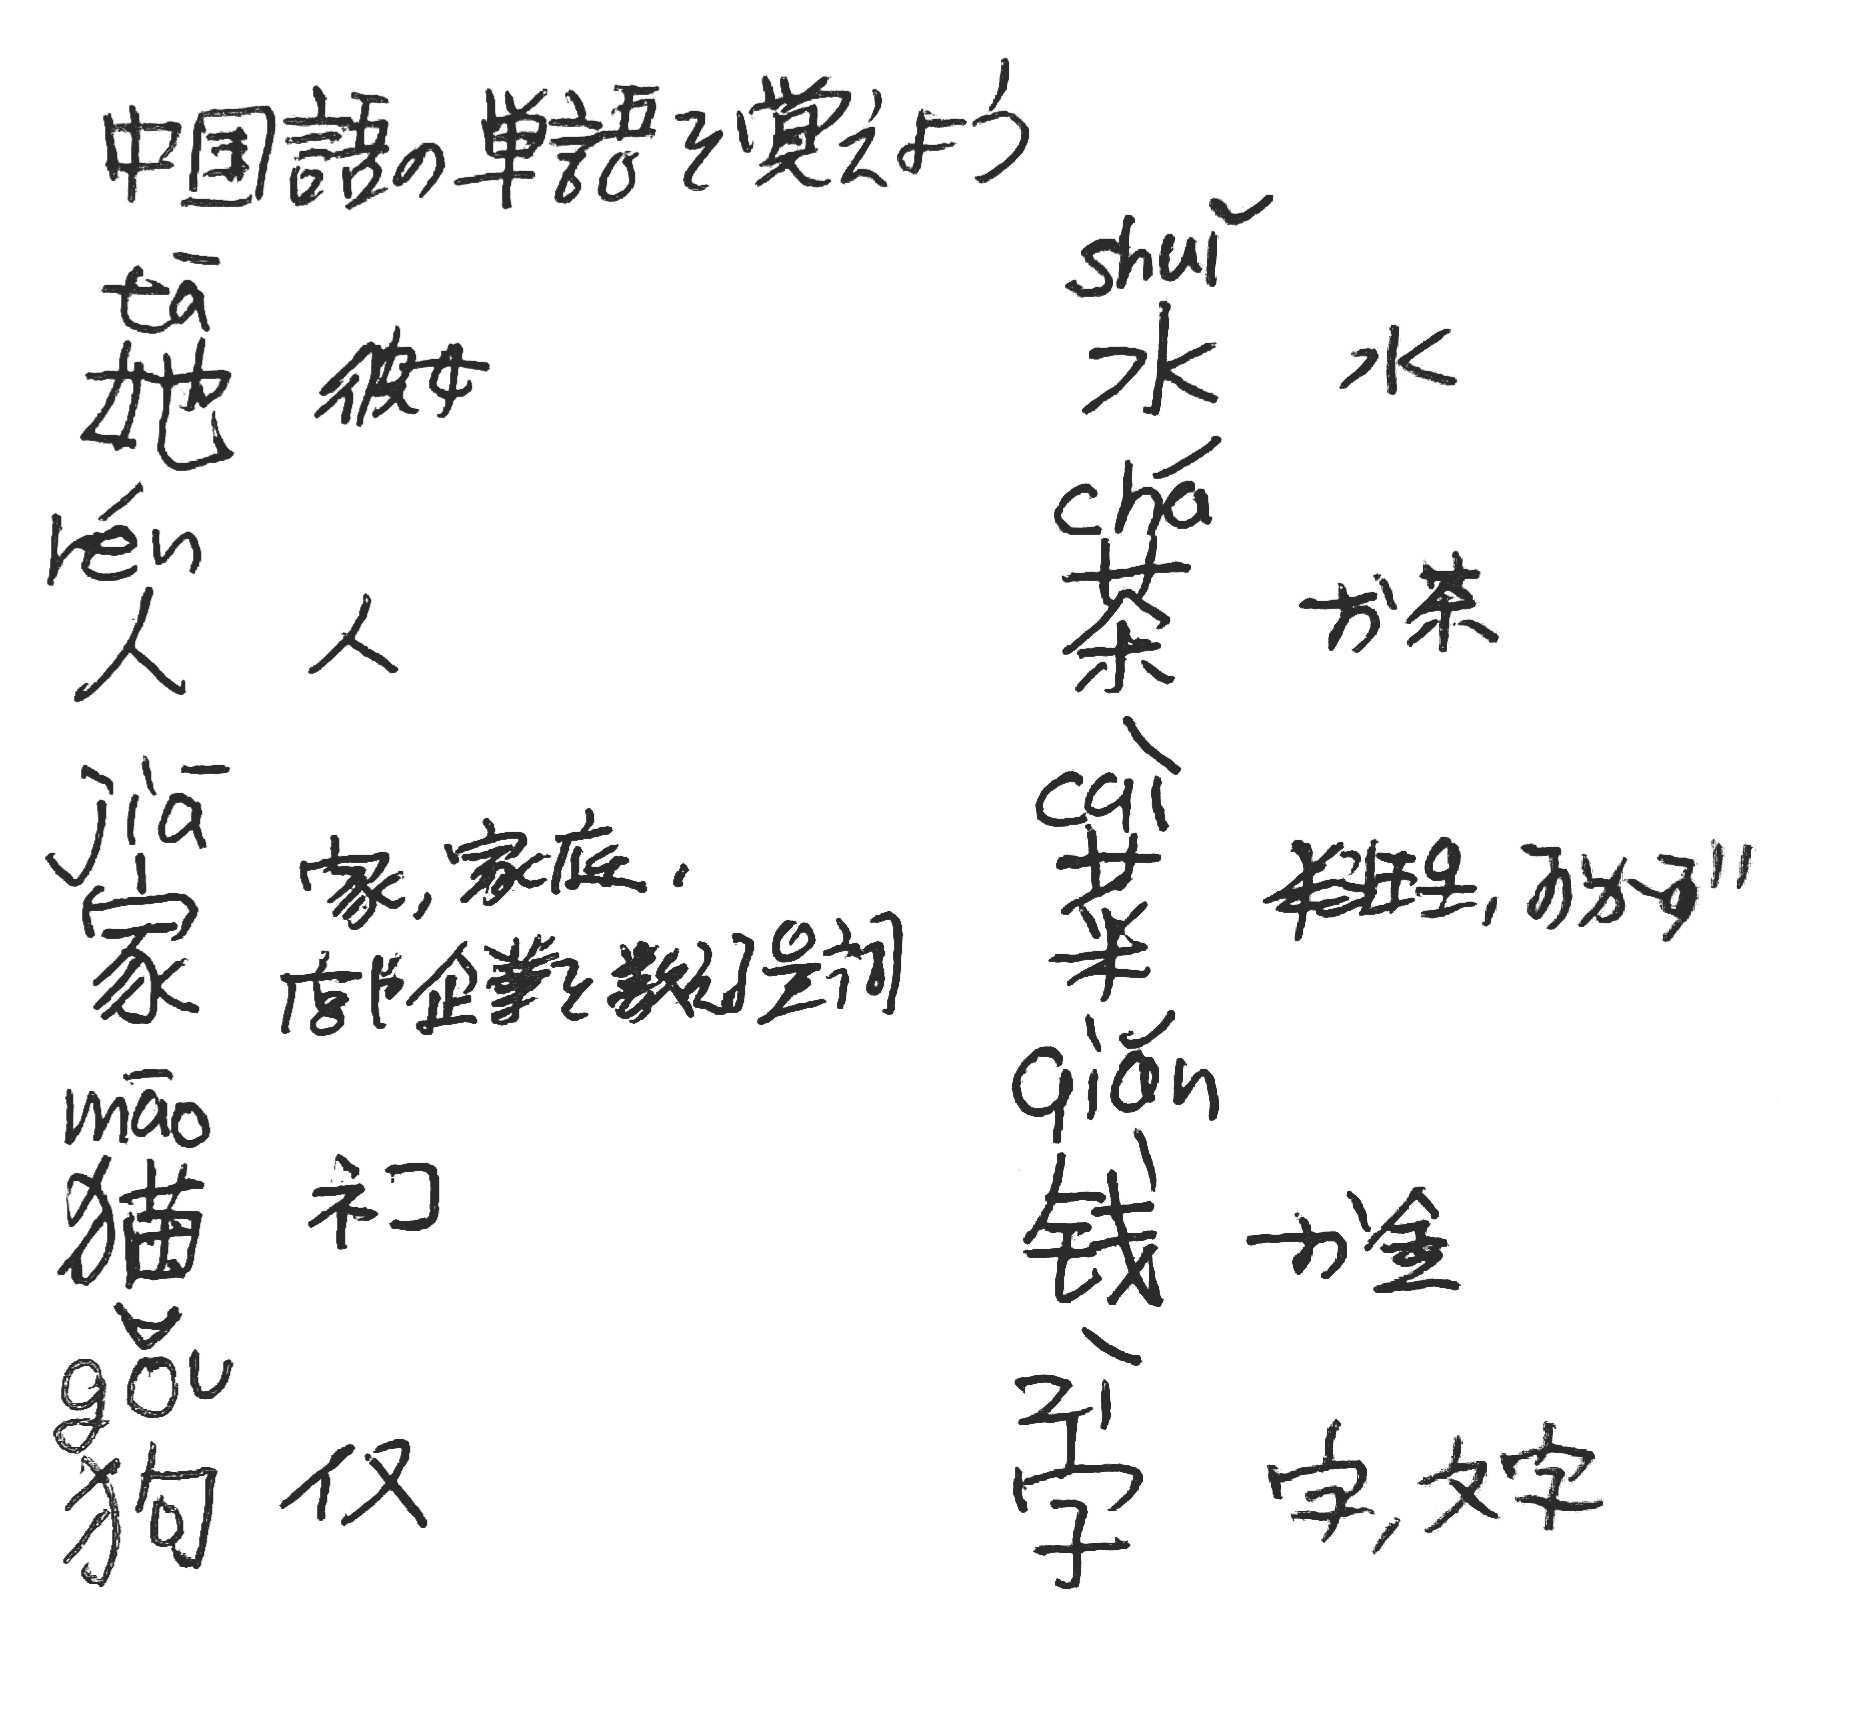 中国語の単語を覚えよう
tā
她 彼女
rén
人 人
jiā
家 家, 家庭,
店や企業を数える量詞
māo
猫 ネコ
gǒu
狗 イヌ
shuǐ
水 水
chá
茶 お茶
cài
菜 料理, おかず
qiǎn
钱 お金
zì
字 字, 文字